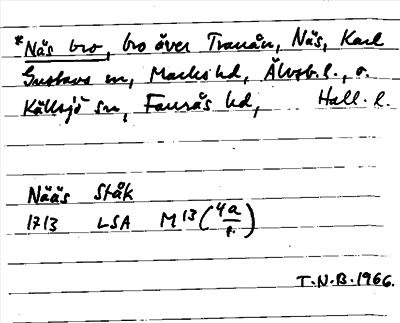 *Näs bro, bro över Tranån, Näs, Karl
Gustavs sn, Marks hd, Älvsb. l., o.
Källsjö sn, Faurås hd, Hall. l.
Nääs Ståk
1713 LSA M 13 (4a/1.)
T.N.B. 1966.